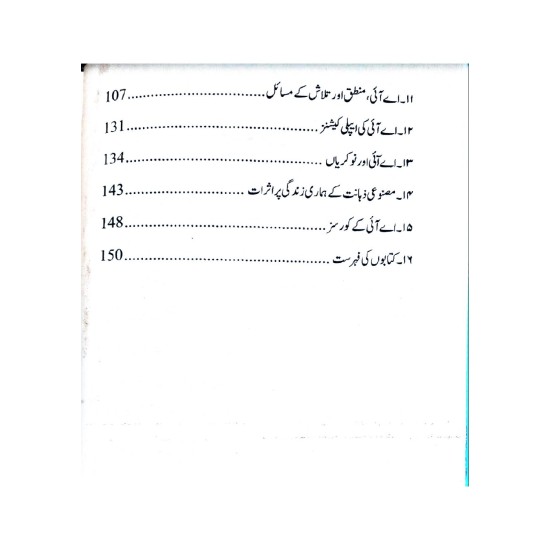 ۱۱۔ اے آئی، منطق اور تلاش کے مسائل ........................... 107
۱۲۔ اے آئی کی ایپلی کیشنز ........................................ 131
۱۳۔ اے آئی اور نوکریاں ....................................... 134
۱۴۔ مصنوعی ذہانت کے ہماری زندگی پر اثرات ........................ 143
۱۵۔ اے آئی کے کورسز ........................................ 148
۱۶۔ کتابوں کی فہرست ......................................... 150